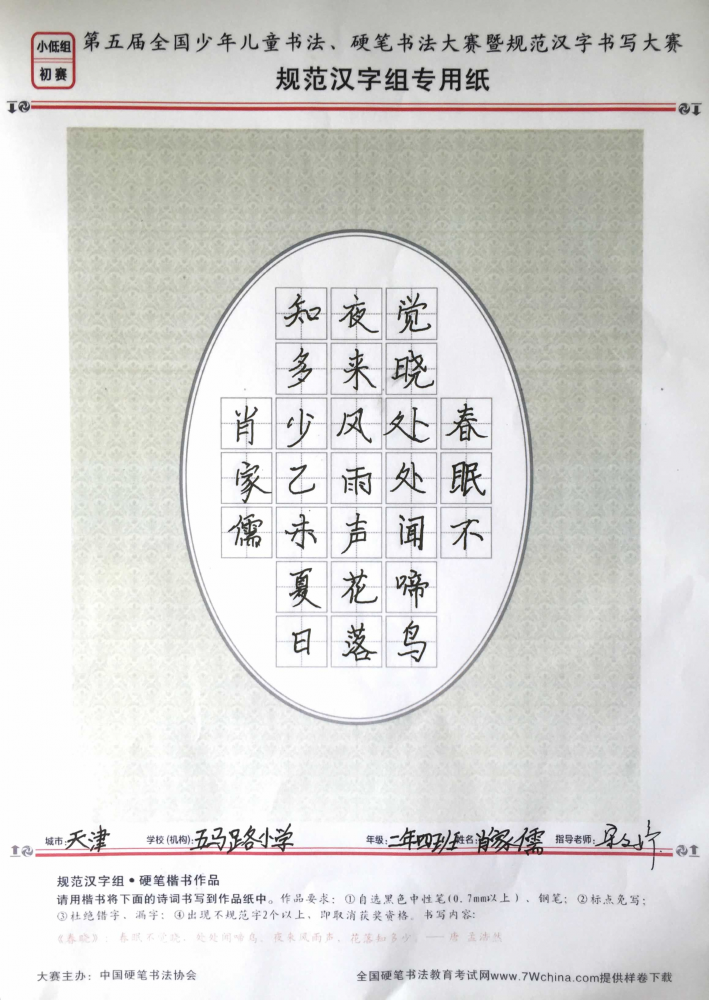 小低组
初赛
第五届全国少年儿童书法、硬笔书法大赛暨规范汉字书写大赛
规范汉字组专用纸
春眠不
觉晓处处闻啼鸟
夜来风雨声花落
知多少乙未夏日
肖家儒
城市:天津 学校(机构):五马路小学 年级:二年四班 姓名:肖家儒 指导老师:宋文婷
规范汉字组•硬笔楷书作品
请用楷书将下面的诗词书写到作品纸中。作品要求：①自选黑色中性笔(0.7mm以上)、钢笔；②标点免写；
③杜绝错字、漏字；④出现不规范字2个以上，即取消获奖资格。书写内容：
《春晓》：春眠不觉晓，处处闻啼鸟。夜来风雨声，花落知多少。——唐 孟浩然
大赛主办：中国硬笔书法协会 全国硬笔书法教育考试网www.7Wchina.com提供样卷下载